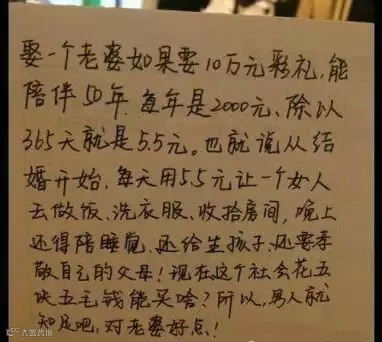 娶一个老婆如果要10万元彩礼,能
陪伴50年.每年是2000元、除以
365天就是5.5元。也就说从结
婚开始.每天用5.5元让一个女人
去做饭、洗衣服、收拾房间,晚上
还得陪睡觉.还给生孩子.还要孝
敬自己的父母!现在这个社会花五
块五毛钱能买啥?所以,男人就
知足吧,对老婆好点!
大数跨境